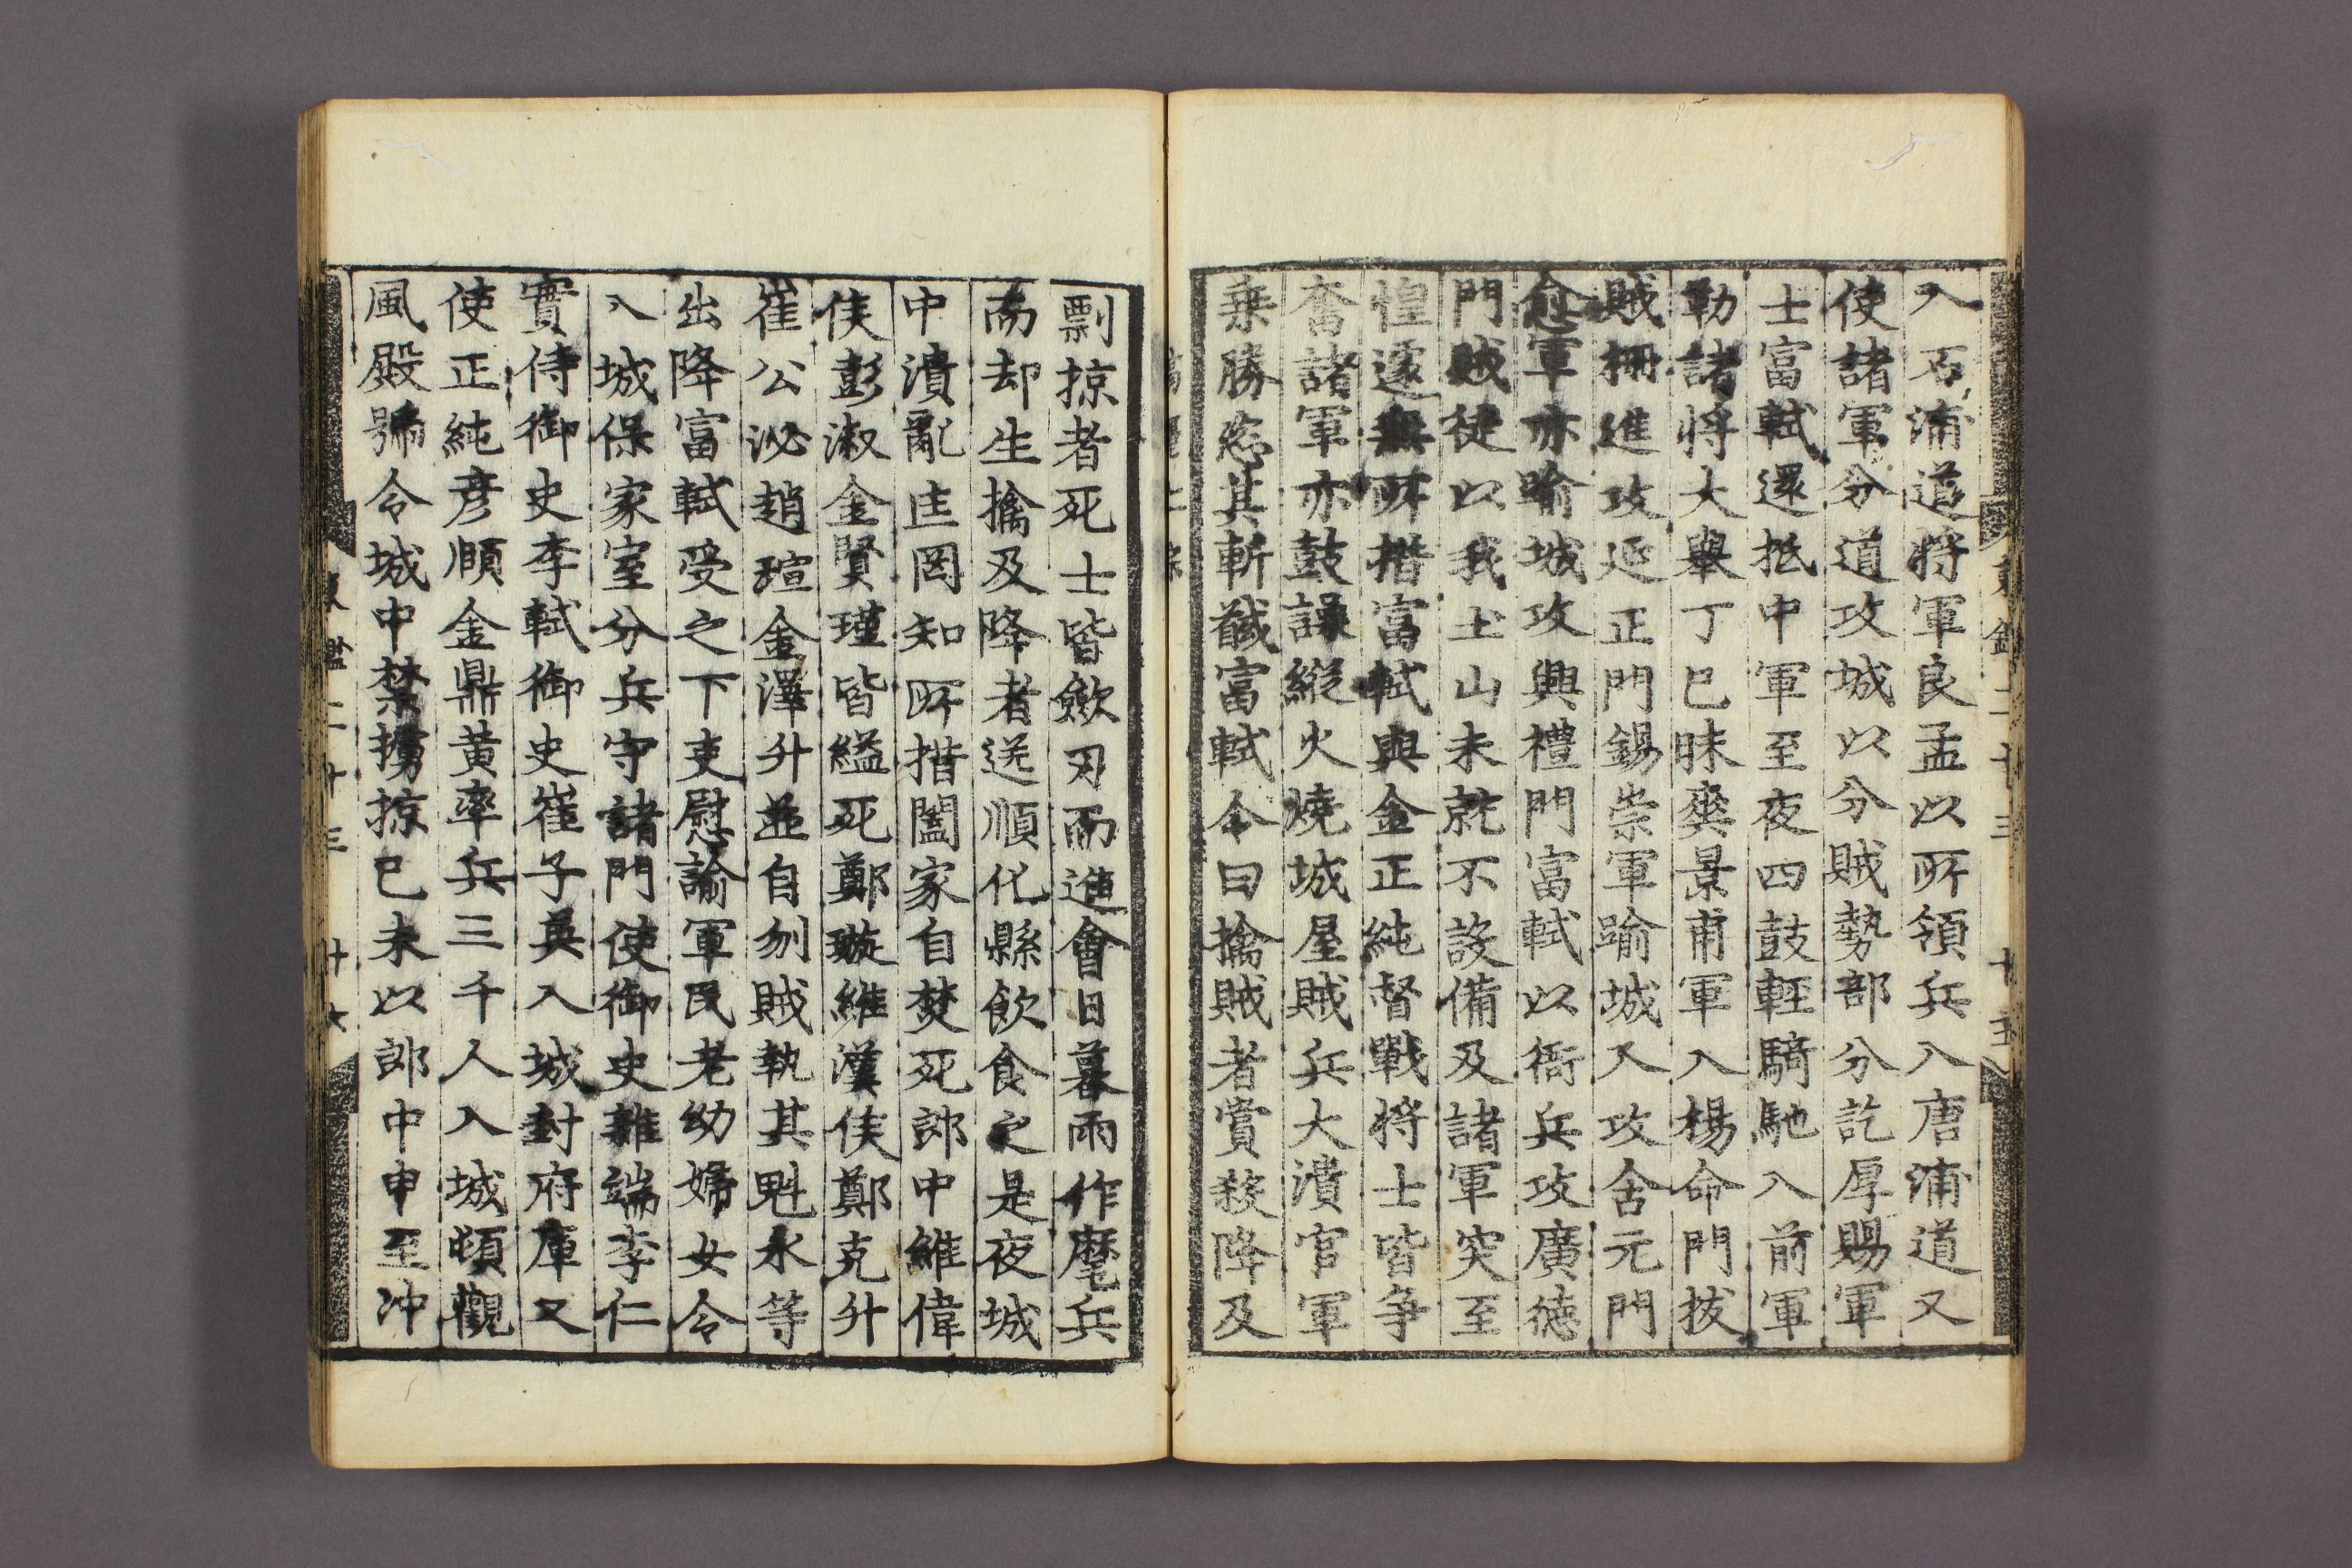 入石浦道將軍良孟以所領兵入唐浦道又
使諸軍分道攻城以分賊勢部分訖厚賜軍
士富軾還抵中軍至夜四鼓輕騎馳入前軍
勒諸將大舉丁巳昧爽景甫軍入楊命門拔
賊柵進攻延正門錫崇軍踰城入攻含元門
愈軍亦踰城攻興禮門富軾以衙兵攻廣德
門賊徒以我土山未就不設備及諸軍突至
惶遽無所措富軾與金正純督戰將士皆爭
奮諸軍亦鼓譟縱火燒城屋賊兵大潰官軍
乗勝恣其斬馘富軾令曰擒賊者賞殺降及
剽掠者死士皆歛刃而進會日暮雨作麾兵
而却生擒及降者送順化縣飮食之是夜城
中潰亂匡罔知所措闔家自焚死郎中維偉
侯彭淑金賢瑾皆縊死鄭璇維漢侯鄭克升
崔公泌趙瑄金澤升並自刎賊執其魁永等
出降富軾受之下吏慰諭軍民老幼婦女令
入城保家室分兵守諸門使御史雜端李仁
實侍御史李軾御史崔子英入城封府庫又
使正純彦頤金鼎黃率兵三千人入城頓觀
風殿號令城中禁擄掠己未以郎中申至冲
東鑑二十三